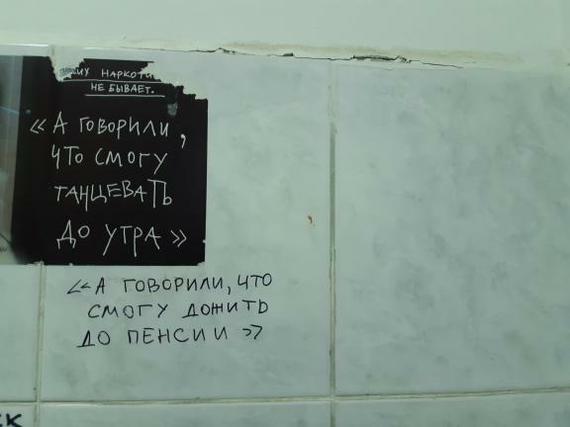 НАРКОТИ
НЕ БЫВАЕТ.
«А ГОВОРИЛИ,
ЧТО СМОГУ
ТАНЦЕВАТЬ
ДО УТРА»
«А ГОВОРИЛИ, ЧТО
СМОГУ ДОЖИТЬ
ДО ПЕНСИИ»